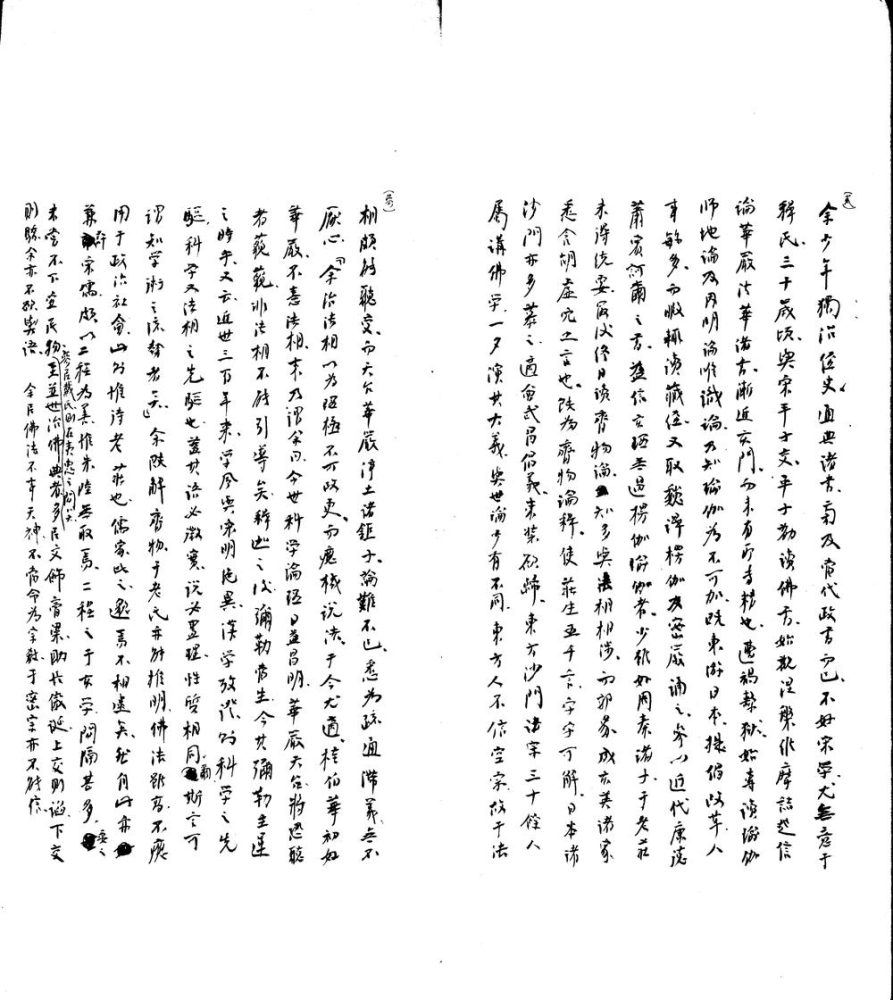 余少年獨治經史通典諸書、旁及當代政書而已、不好宋學、尤無意于
釋氏、三十歲頃、與宋平子交、平子勸讀佛書、始觀涅槃維摩詰起信
論華嚴法華諸書、漸近玄門、而未有所專精也、遭禍繫獄、始專讀瑜伽
師地論及因明論唯識論、乃知瑜伽為不可加、既東游日本、提倡改革、人
事繁多、而暇輒讀藏經、又取魏譯楞伽及密嚴誦之、參以近代康德
蕭賓訶爾之書、益信玄理無過楞伽瑜伽者、少雖好周秦諸子、于老莊
未得統要、最後終日讀齊物論、知多與法相相涉、而郭象成玄英諸家
悉含胡虛冗之言也、既為齊物論釋、使莊生五千言、字字可解、日本諸
沙門亦多慕之、適會武昌倡義、束裝欲歸、東方沙門諸宗三十餘人
屬講佛學、一夕演其大義、與世論少有不同、東方人不信空宗、故于法
相頗能聽受、而天台華嚴淨土諸鉅子、論難不已、悉為疏通滯義、無不
厭心、余治法相、以為理極不可改更、而應機說法、于今尤適、桂伯華初好
華嚴、不喜法相、末乃謂余曰、今世科學論理日益昌明、華嚴天台、將恐聽
者藐藐、非法相不能引導矣、釋迦之後、彌勒當生、今其彌勒主運
之時乎、又云、近世三百年來、學風與宋明絕異、漢學考證、則科學之先
驅、科學又法相之先驅也、蓋其語必徵實、說必盡理、性質相同爾、斯言可
謂知學術之流勢者矣、余既解齊物、于老氏亦能推明、佛法雖高、不應
用于政治社會、此則惟待老莊也、儒家比之、邈焉不相逮矣、然自此亦
兼許宋儒、頗以二程為善、惟朱陸無取焉、二程之于玄學、間隔甚多、要之
未嘗不下宜民物、參以戴氏、則在夷惠之間矣、至並世治佛典者、多以文飾膏粱、助長傲誕、上交則諂、下交
則驕、余亦不欲與語、余以佛法不事天神、不當命為宗教、于密宗亦不能信、